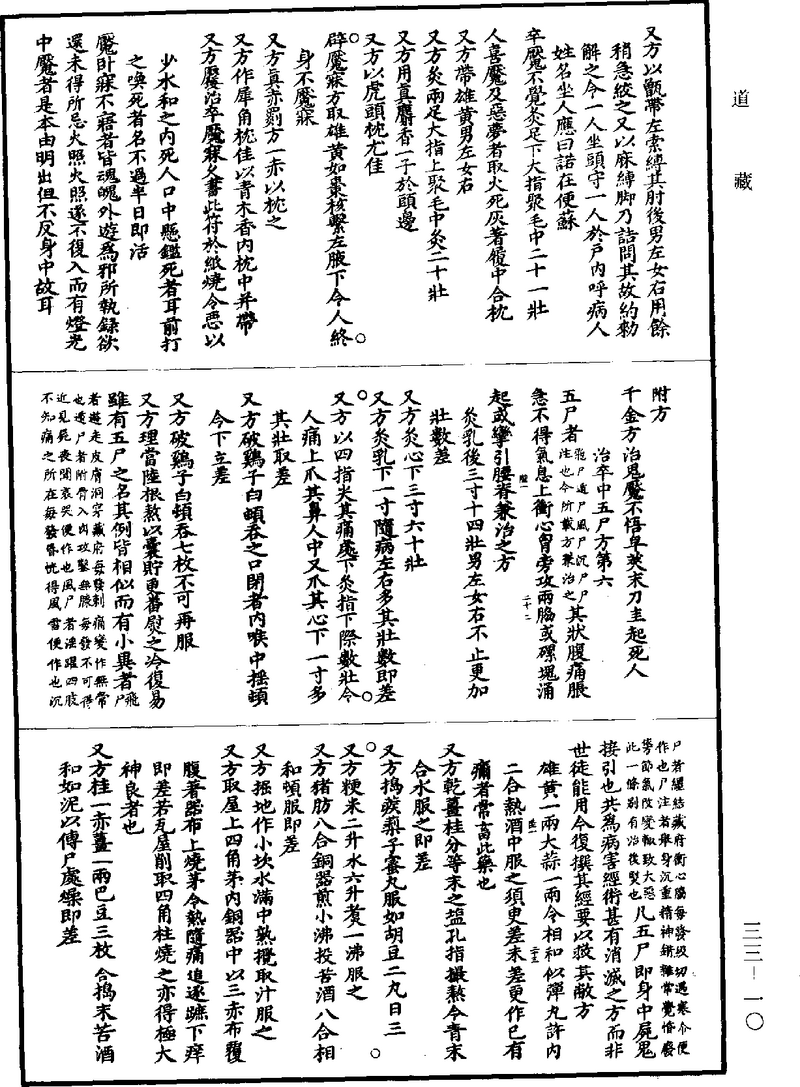 道藏
又方以甑帶左索縛其肘後男左女右用餘
稍急絞之又以麻縛脚乃詰問其故約勑
解之令一人坐頭守一人於戶內呼病人
姓名坐人應曰諾在便蘇
卒魘不覺灸足下大指聚毛中二十一壯
人喜魘及惡夢者取火死灰著履中合枕
又方帶雄黃男左女右
又方灸兩足大指上聚毛中灸二十壯
又方用真麝香一子於頭邊
又方以虎頭枕尤佳
辟魘寐方取雄黃如棗核繫左腋下令人終
身不魘寐
又方真赤罽方一赤以枕之
又方作犀角枕佳以青木香內枕中并帶
又方魘治卒魘寐久書此符於紙燒令黑以
少水和之內死人口中懸鑑死者耳前打
之喚死者名不過半日即活
魘臥寐不寤者皆魂魄外遊爲邪所執錄欲
還未得所忌火照火照遂不復入而有燈光
中魘者是本由明出但不反身中故耳
附方
千金方治鬼魘不悟皁莢末刀圭起死人
治卒中五尸方第六
五尸者飛尸遁尸風尸沉尸尸注也今所載方兼治之其狀腹痛脹
急不得氣息上衝心胷旁攻兩脇或磥塊涌
起或攣引腰脊兼治之方
灸乳後三寸十四壯男左女右不止更加
壯數差
又方灸心下三寸六十壯
又方灸乳下一寸隨病左右多其壯數即差
又方以四指尖其痛處下灸指下際數壯令
人痛上爪其鼻人中又爪其心下一寸多
其壯取差
又方破鷄子白頓吞之口閉者內喉中搖頓
令下立差
又方破鷄子白頓吞七枚不可再服
又方理當陸根熬以囊貯更番熨之冷復易
雖有五尸之名其例皆相似而有小異者飛尸
者遊走皮膚洞穿藏府每發刺痛變作無常
也遁尸者附骨入肉攻鑿血脉每發不可得
近見死喪聞哀哭便作也風尸者淫躍四肢
不知痛之所在每發昏恍得風雪便作也沉
尸者纏結藏府衝心脇每發絞切遇寒冷便
作也尸注者舉身沉重精神錯雜常覺惛廢
每節氣改變輒致大惡此一條別有治後熨也凡五尸即身中屍鬼
接引也共爲病害經術甚有消滅之方而非
世徒能用今復撰其經要以救其敝方
雄黃一兩大蒜一兩令相和似彈丸許內
二合熱酒中服之須更差未差更作已有
痛者常畜此藥也
又方乾薑桂分等末之塩孔指撮熬令青末
合水服之即差
又方搗蒺蔾子蜜丸服如胡豆二丸日三
又方粳米二升水六升煑一沸服之
又方猪肪八合銅器煎小沸投苦酒八合相
和頓服即差
又方掘地作小坎水滿中熟攪取汁服之
又方取屋上四角茅內銅器中以三赤布覆
腹著器布上燒茅令熱隨痛追逐蹠下痒
即差若瓦屋削取四角柱燒之亦得極大
神良者也
又方桂一赤薑一兩巴豆三枚合搗末苦酒
和如泥以傅尸處燥即差
三三－一〇